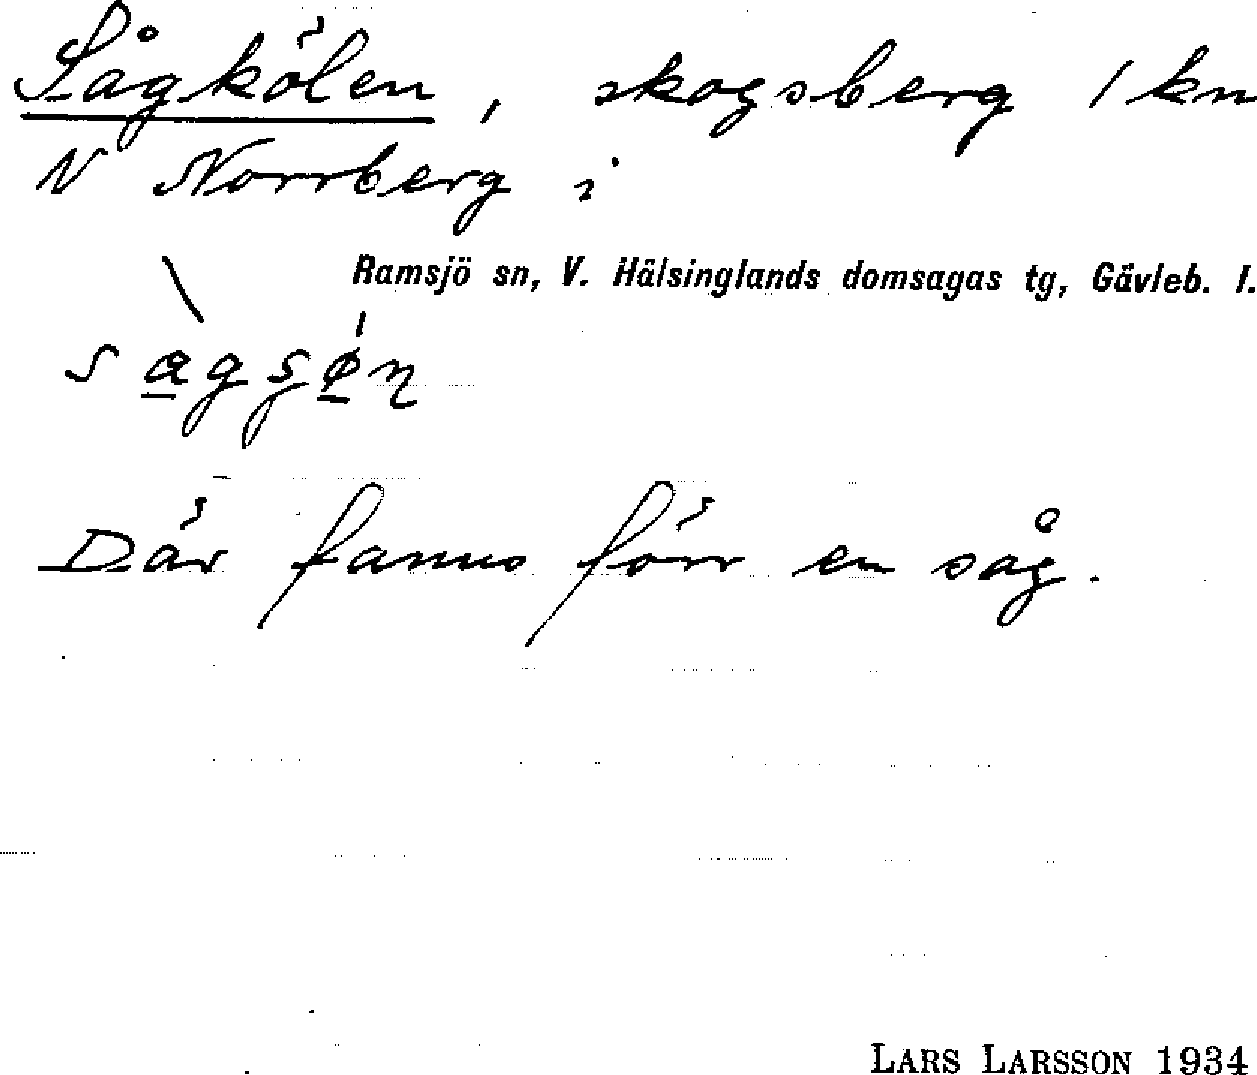 Sågkölen, skogsberg 1 km
N Norrberg i
Ramsjö sn, V. Hälsinglands domsagas tg, Gävleb. l.
Där fanns förr en såg.
LARS LARSSON 1934